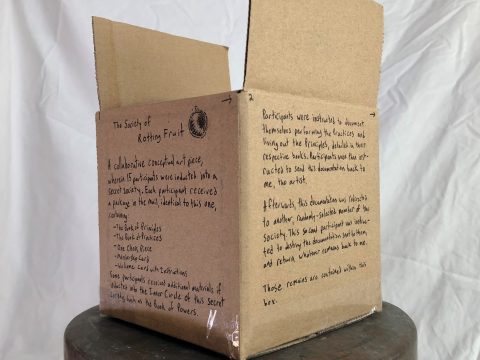 The Society of
Rotting Fruit
A collaborative conceptual art piece,
wherein 15 participants were inducted into a
secret society. Each participant received
a package in the mail, identical to this one,
containing:
-The Book of Principles
-The Book of Practices
-One Chess Piece
-Membership Card
-Welcome Card with Instructions
Some participants received additional materials if
inducted into the Inner Circle of this secret
society, such as the Book of Powers.
2
Participants were instructed to document
themselves performing the Practices and
living out the Principles, detailed in their
respective books. Participants were then inst-
ructed to send this documentation back to
me, the artist.
Afterwards, this documentation was redirected
to another, randomly-selected member of the
society. This second participant was instruc-
ted to destroy the documentation sent to them,
and return whatever remains back to me.
Those remains are contained within this
box.